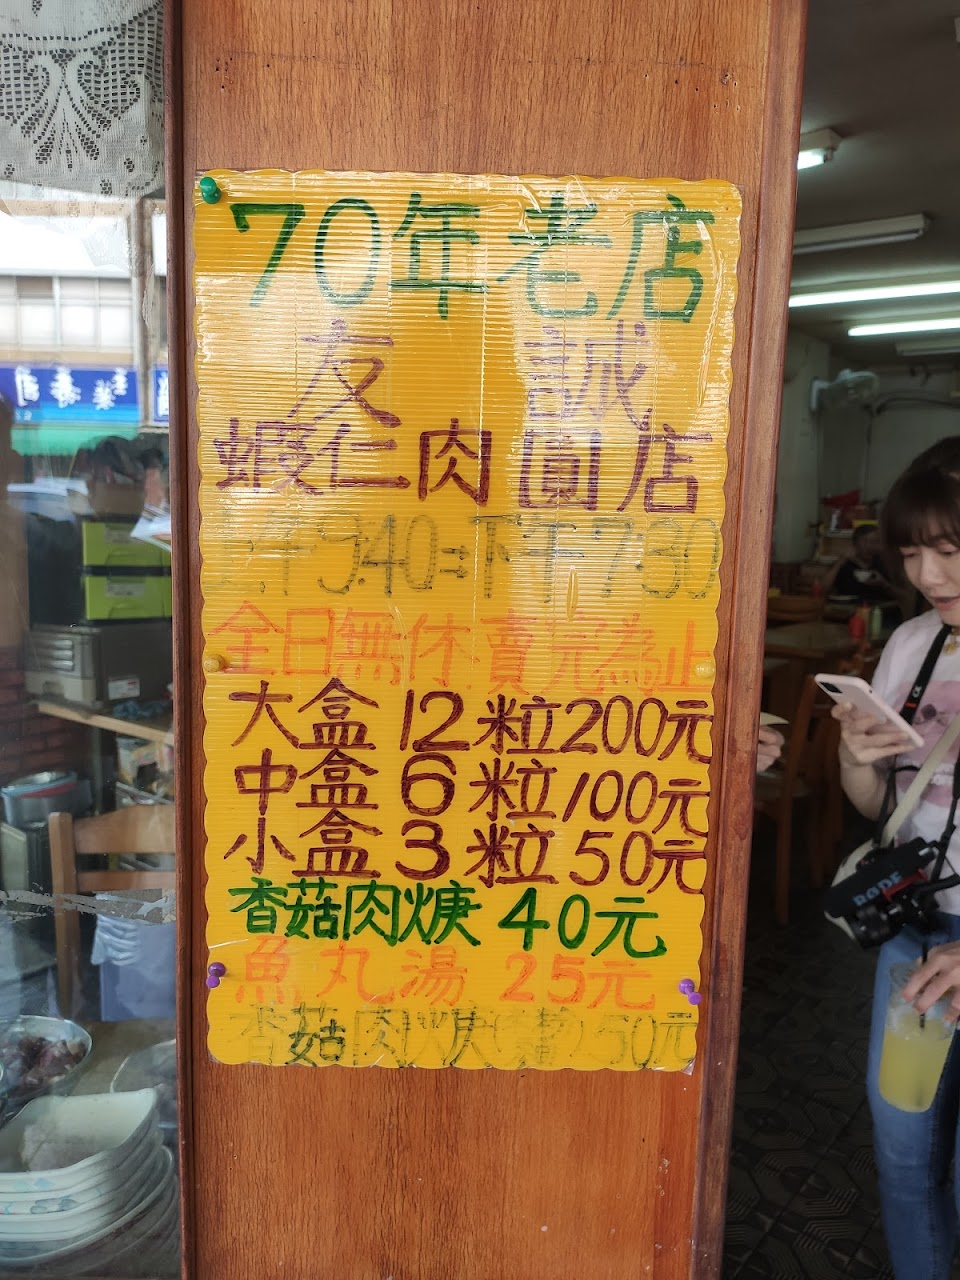 70年老店
友誠
蝦仁肉圓店
上午9:40=下午7:30
全日無休賣完為止
大盒12粒200元
中盒6粒100元
小盒3粒50元
香菇肉焿40元
魚丸湯25元
香菇肉焿(  )50元
RODE